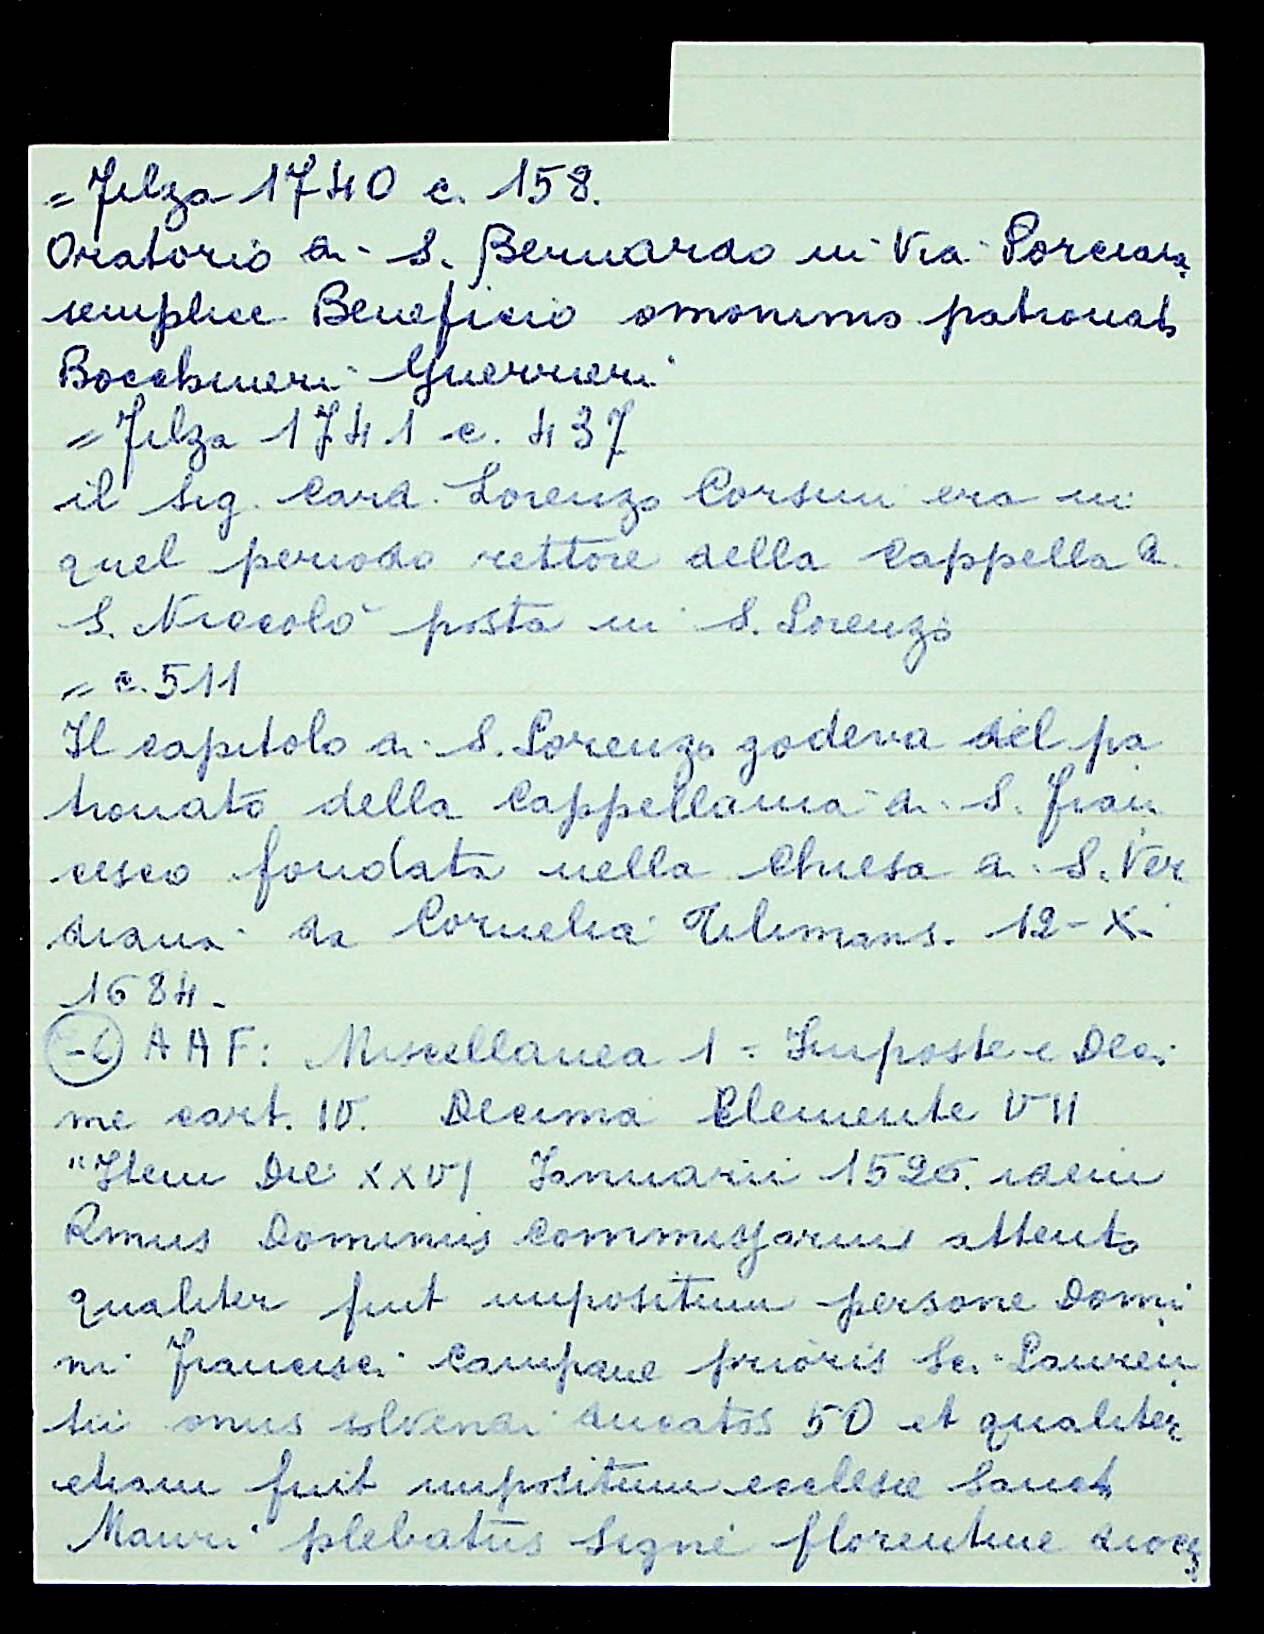 = Filza 1740 c. 158.
Oratorio di S. Bernardo in Via Porciaia
semplice Beneficio omonimo patronato
Bocchineri Guerrieri
= Filza 1741 c. 437
il Sig. Card. Lorenzo Corsini era in
quel periodo rettore della Cappella di
S. Niccolò posta in S. Lorenzo
= c. 511
Il capitolo di S. Lorenzo godeva del pa
tronato della Cappellania di S. Fran
cesco fondata nella Chiesa di S. Ver
diana da Cornelia Tilimans. 12-X-
1684.
AAF: Miscellanea 1 = Imposte e Deci
me cart. IV. Decima Clemente VII
"Item Die XXVI Januarii 1526. idem
Rmus Dominus Commissarius attento
qualiter fuit impositum persone Domi
ni Francisci Campane prioris Sci Lauren
tii onus solvendi ducatos 50 et qualiter
etiam fuit impositum ecclesie Sancti
Mauri plebatus Signe florentine dioc